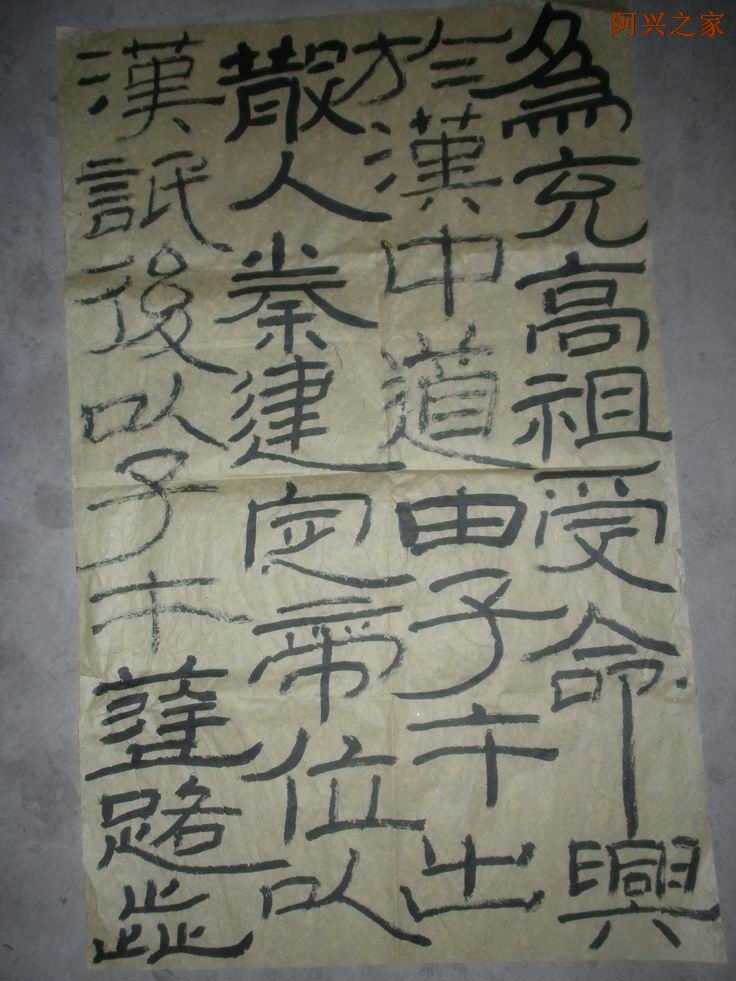 阿兴之家
為充高祖受命興
於漢中道由子午出
散入秦建定帝位以
漢詆後以子午路歰